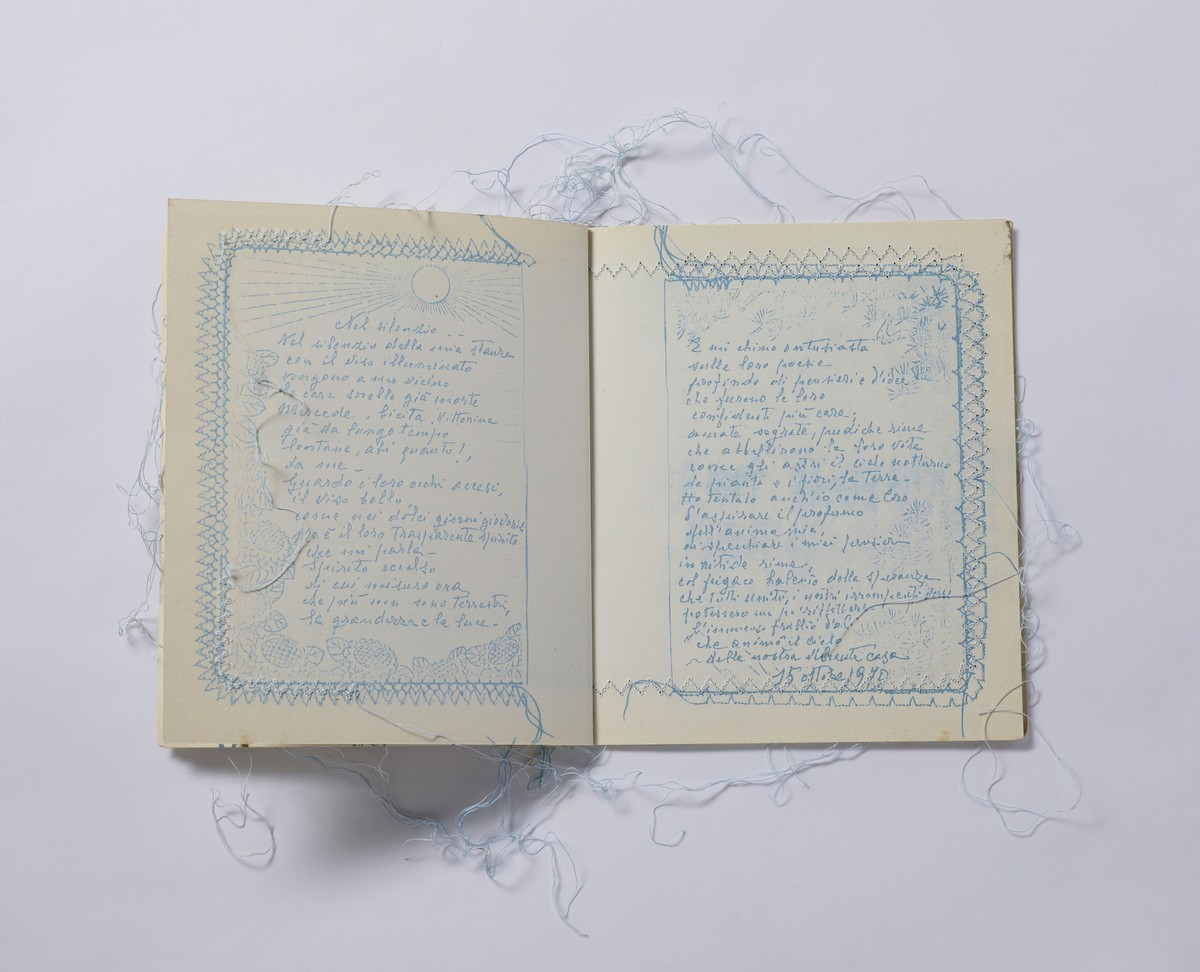 Nel silenzio
Nel silenzio della mia stanza
con il viso illuminato
vengono a me vicino
le care sorelle già morte
Mercede, Licita, Vittorina
già da lungo tempo
lontane, ahi quanto!,
da me -
Guardo i loro occhi accesi,
il viso bello
come nei dolci giorni giovanili
Ma è il loro trasparente spirito
che mi parla -
Spirito eccelso
di cui misuro ora,
che più non sono terrestri,
la grandezza e la luce -
E mi chino entusiasta
sulle loro poesie
profonde di pensieri e d'idee
che furono le loro
confidenti più care;
amate segrete, pudiche rime
che abbellirono la loro vita
come gli astri il cielo notturno
le piante e i fiori, la Terra -
Ho tentato anch'io come loro
d'aspirare il profumo
dell'anima mia,
di specchiare i miei pensieri
in nitide rime,
col fugace balenio della speranza
che tutti uniti, i nostri irrompenti
potessero un po' riflettere
l'immenso
che animò il cielo
della nostra silente casa
15 ottobre 1970